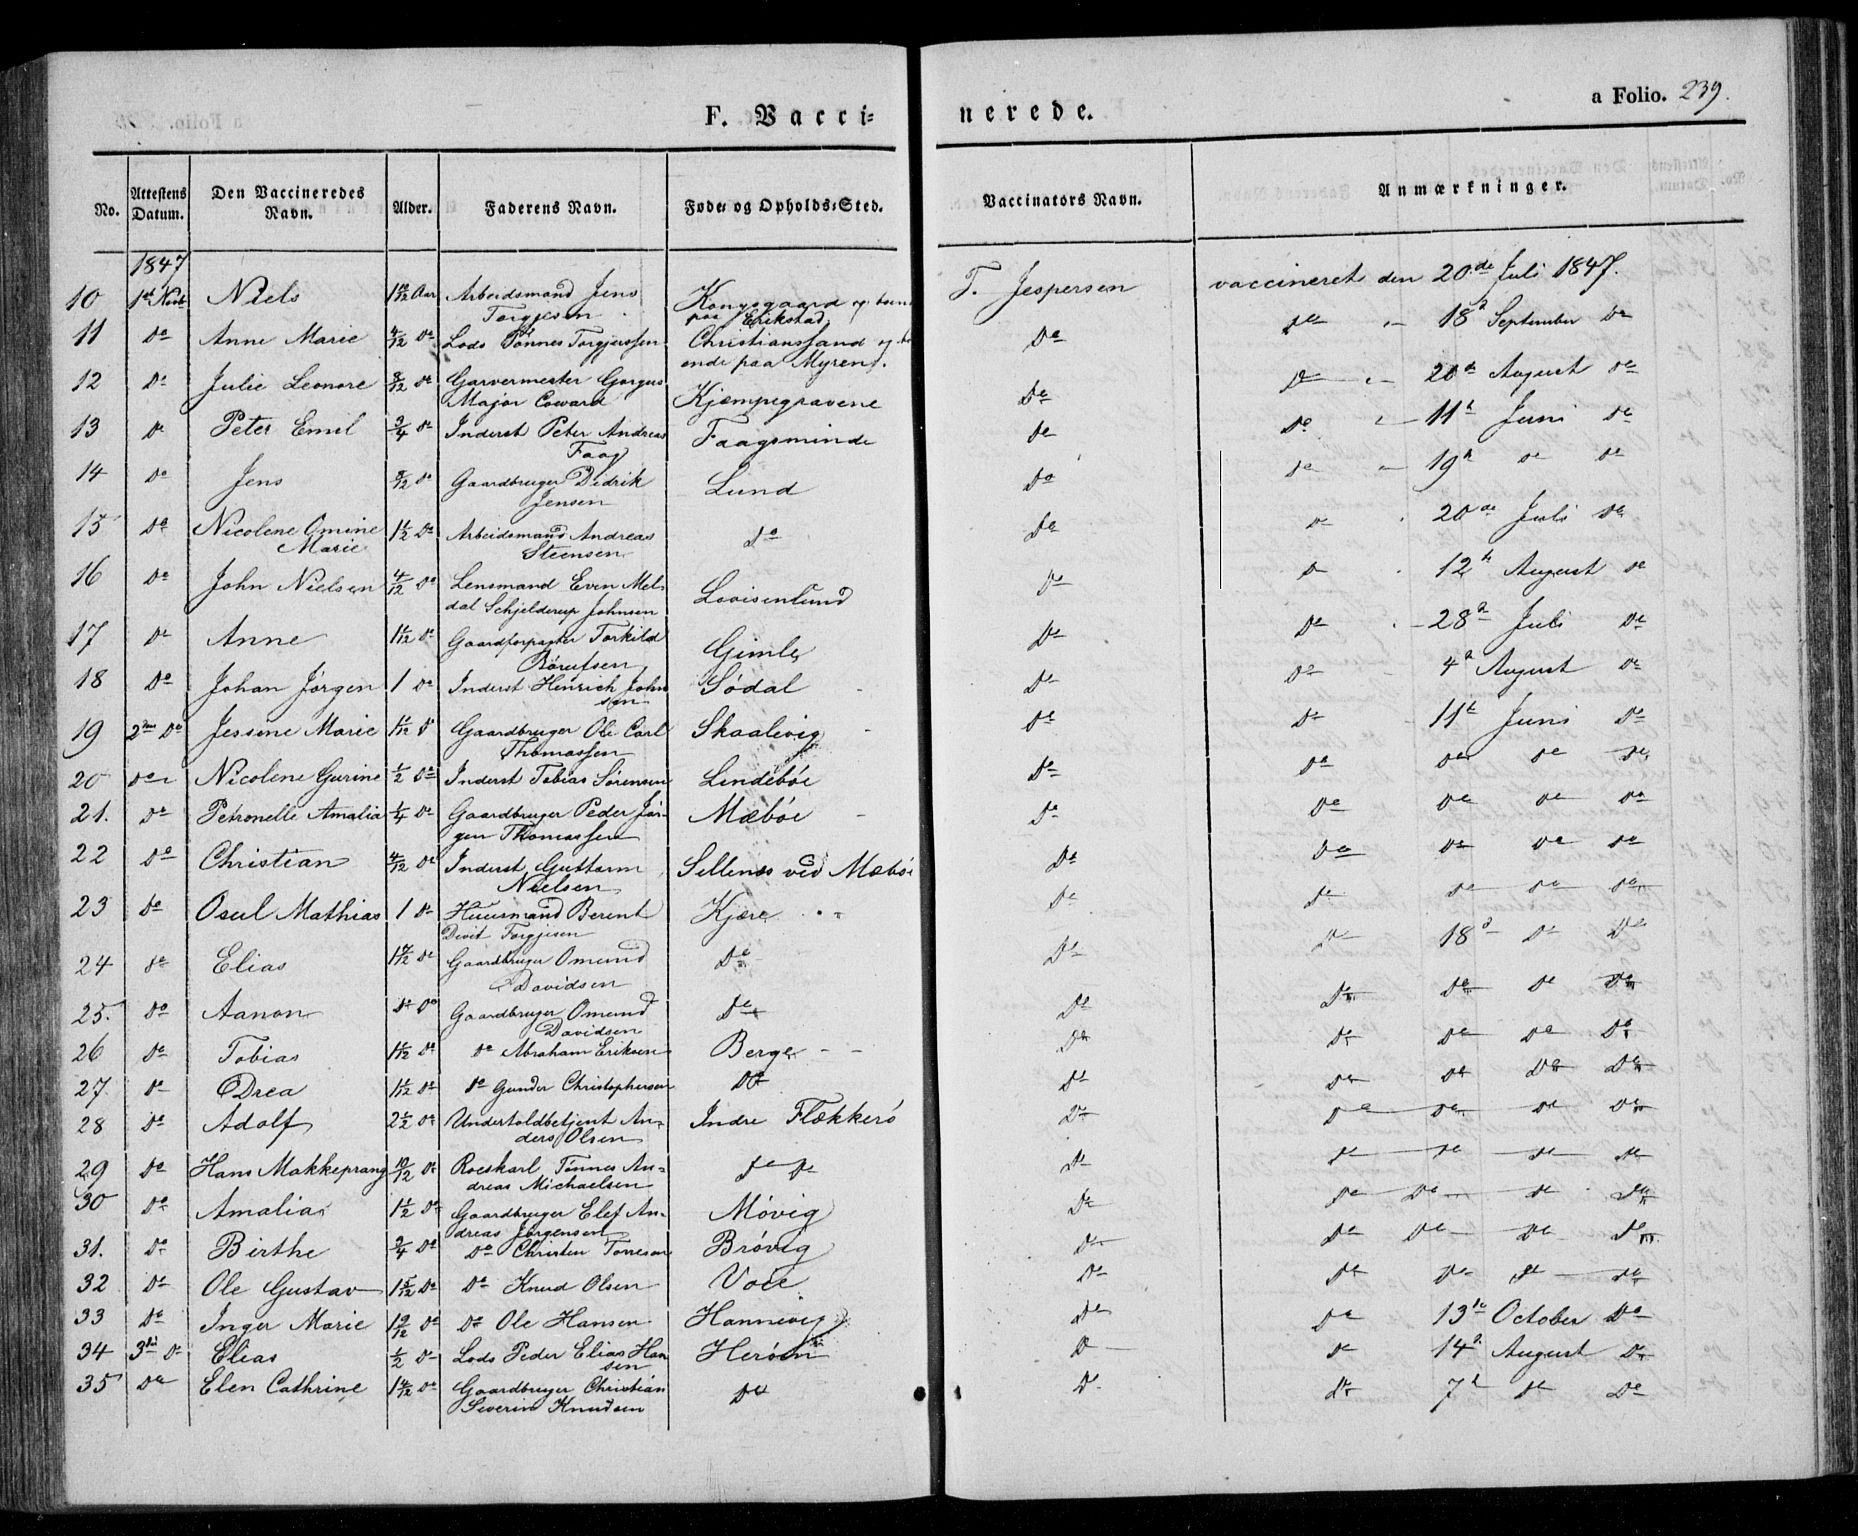 F. Vacci= nerede.
a Folio. 239.
No. | Attestens Datum. | Den Vaccineredes Navn. | Alder. | Faderens Navn. | Føde= og Opholds=Sted. | Vaccinators Navn. | Anmærkninger.
1847
10 | 1ste Novb | Niels | Aar | Arbeidsmand Jens Torgjesen | Kongsgaard og boende paa Erikstad | T. Jespersen | vaccineret den 20de Juli 1847.
11 | do | Anne Marie | 4/12 do | Lods Tønnes Torgjerssen | Christianssand og boende paa Myrene | do | do " 18d September do
12 | do | Julie Leonore | 8/12 do | Garvermester Gorgus Major Coward | Kjæmpegravene | do | do " 20de August do
13 | do | Peter Emil | 3/4 do | Inderst Peter Andreas Faag | Faagsminde | do | do " 11te Juni do
14 | do | Jens | 8/12 do | Gaardbruger Didrik Jensen | Lund | do | do " 19de do do
15 | do | Nicolene Omine Marie | 1 1/2 do | Arbeidsmand Andreas Steensen | do | do | do 20de Juli do
16 | do | John Nielsen | 4/12 do | Lensmand Even Meldal Schjelderup Johnsen | Lovisenlund | do | do 12te August do
17 | do | Anne | do | Gaardforpagter Torkild Børufsen | Gimle | do | do 28d Juli do
18 | do | Johan Jørgen | 1 do | Inderst Henrich Johnsen | Sødal | do | do 4d August do
19 | 2den do | Jessine Marie | do | Gaardbruger Ole Carl Thomassen | Skaalevig | do | do 11te Juni do
20 | do | Nicolene Gurine | 1/2 do | Inderst Tobias Sørensen | Lindebøe | do | do do do do
21. | do | Petronelle Amalia | 1/4 do | Gaardbruger Peder Jørgen Thomassen | Mæbøe | do | do do do do
22 | do | Christian | do | Inderst Guttorm Nielsen | Sillenæs ved Mæbøe | do | do do do do
23 | do | Osul Mathias | 1 do | Huusmand Berent Devit Torgjesen | Kjære | do | do do do do
24 | do | Elias | do | Gaardbruger Omund Davidsen | do | do | do 18d do do
25. | do | Aanon | do do | Gaardbruger Omund Davidsen | do | do | do do do do
26 | do | Tobias | do | do Abraham Eriksen | Berge | do | do do do do
27. | do | Drea | do | do Gunder Christophersen | do | do | do do do do
28 | do | Adolf | 2 1/2 do | Undertoldbetjent Anders Olsen | Indre Flekkerø | do | do do do do
29 | do | Hans Makkeprang | 10/12 do | Roeskarl Tønnes Andreas Michaelsen | do do | do | do do do do
30 | do | Amalia | 1 1/2 do | Gaardbruger Elef Andreas Jørgensen | Møvig | do | do do do do
31. | do | Birthe | 3/4 do | do Christen Torresen | Brøvig | do | do do do do
32 | do | Ole Gustav | 1 5/12 do | do Knud Olsen | Voie | do | do do do do
33 | do | Inger Marie | do | do Ole Hansen | Hannevig | do | do 13te October do
34 | 3die do | Elias | 1/2 do | Lods Peder Elias Hansen | Herøen | do | do 14d August do
35 | do | Elen Cathrine | do | Gaardbruger Christian Severin Knudsen | do | do | do 7d do do